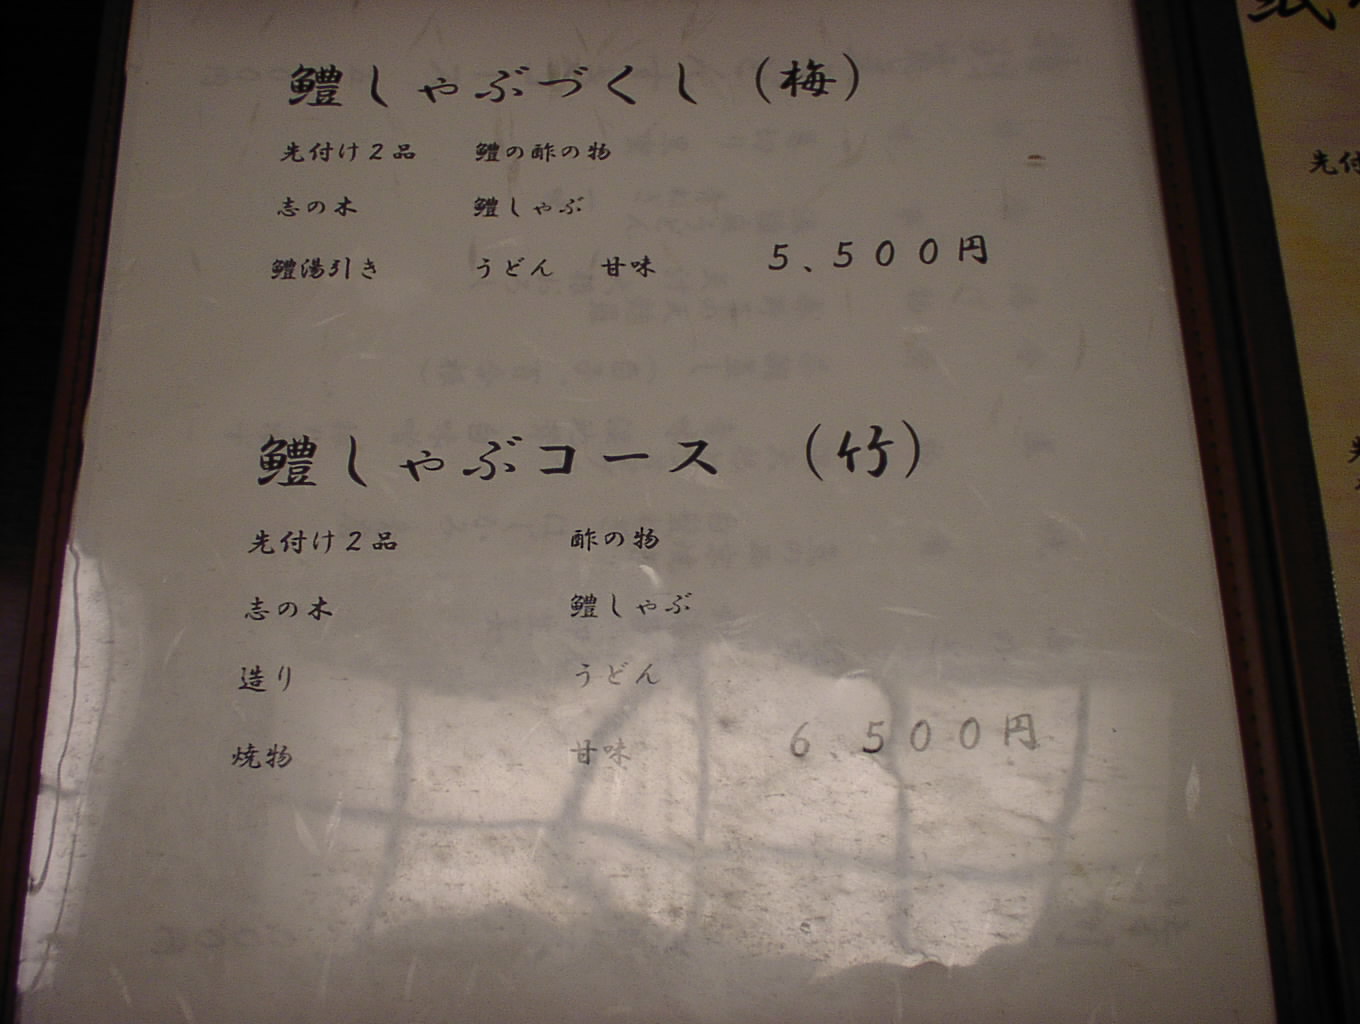 鱧しゃぶづくし（梅）
先付け２品　鱧の酢の物
志の木　鱧しゃぶ
鱧湯引き　うどん　甘味　５、５００円
鱧しゃぶコース　（竹）
先付け２品　酢の物
志の木　鱧しゃぶ
造り　うどん
焼物　甘味　６、５００円
先付